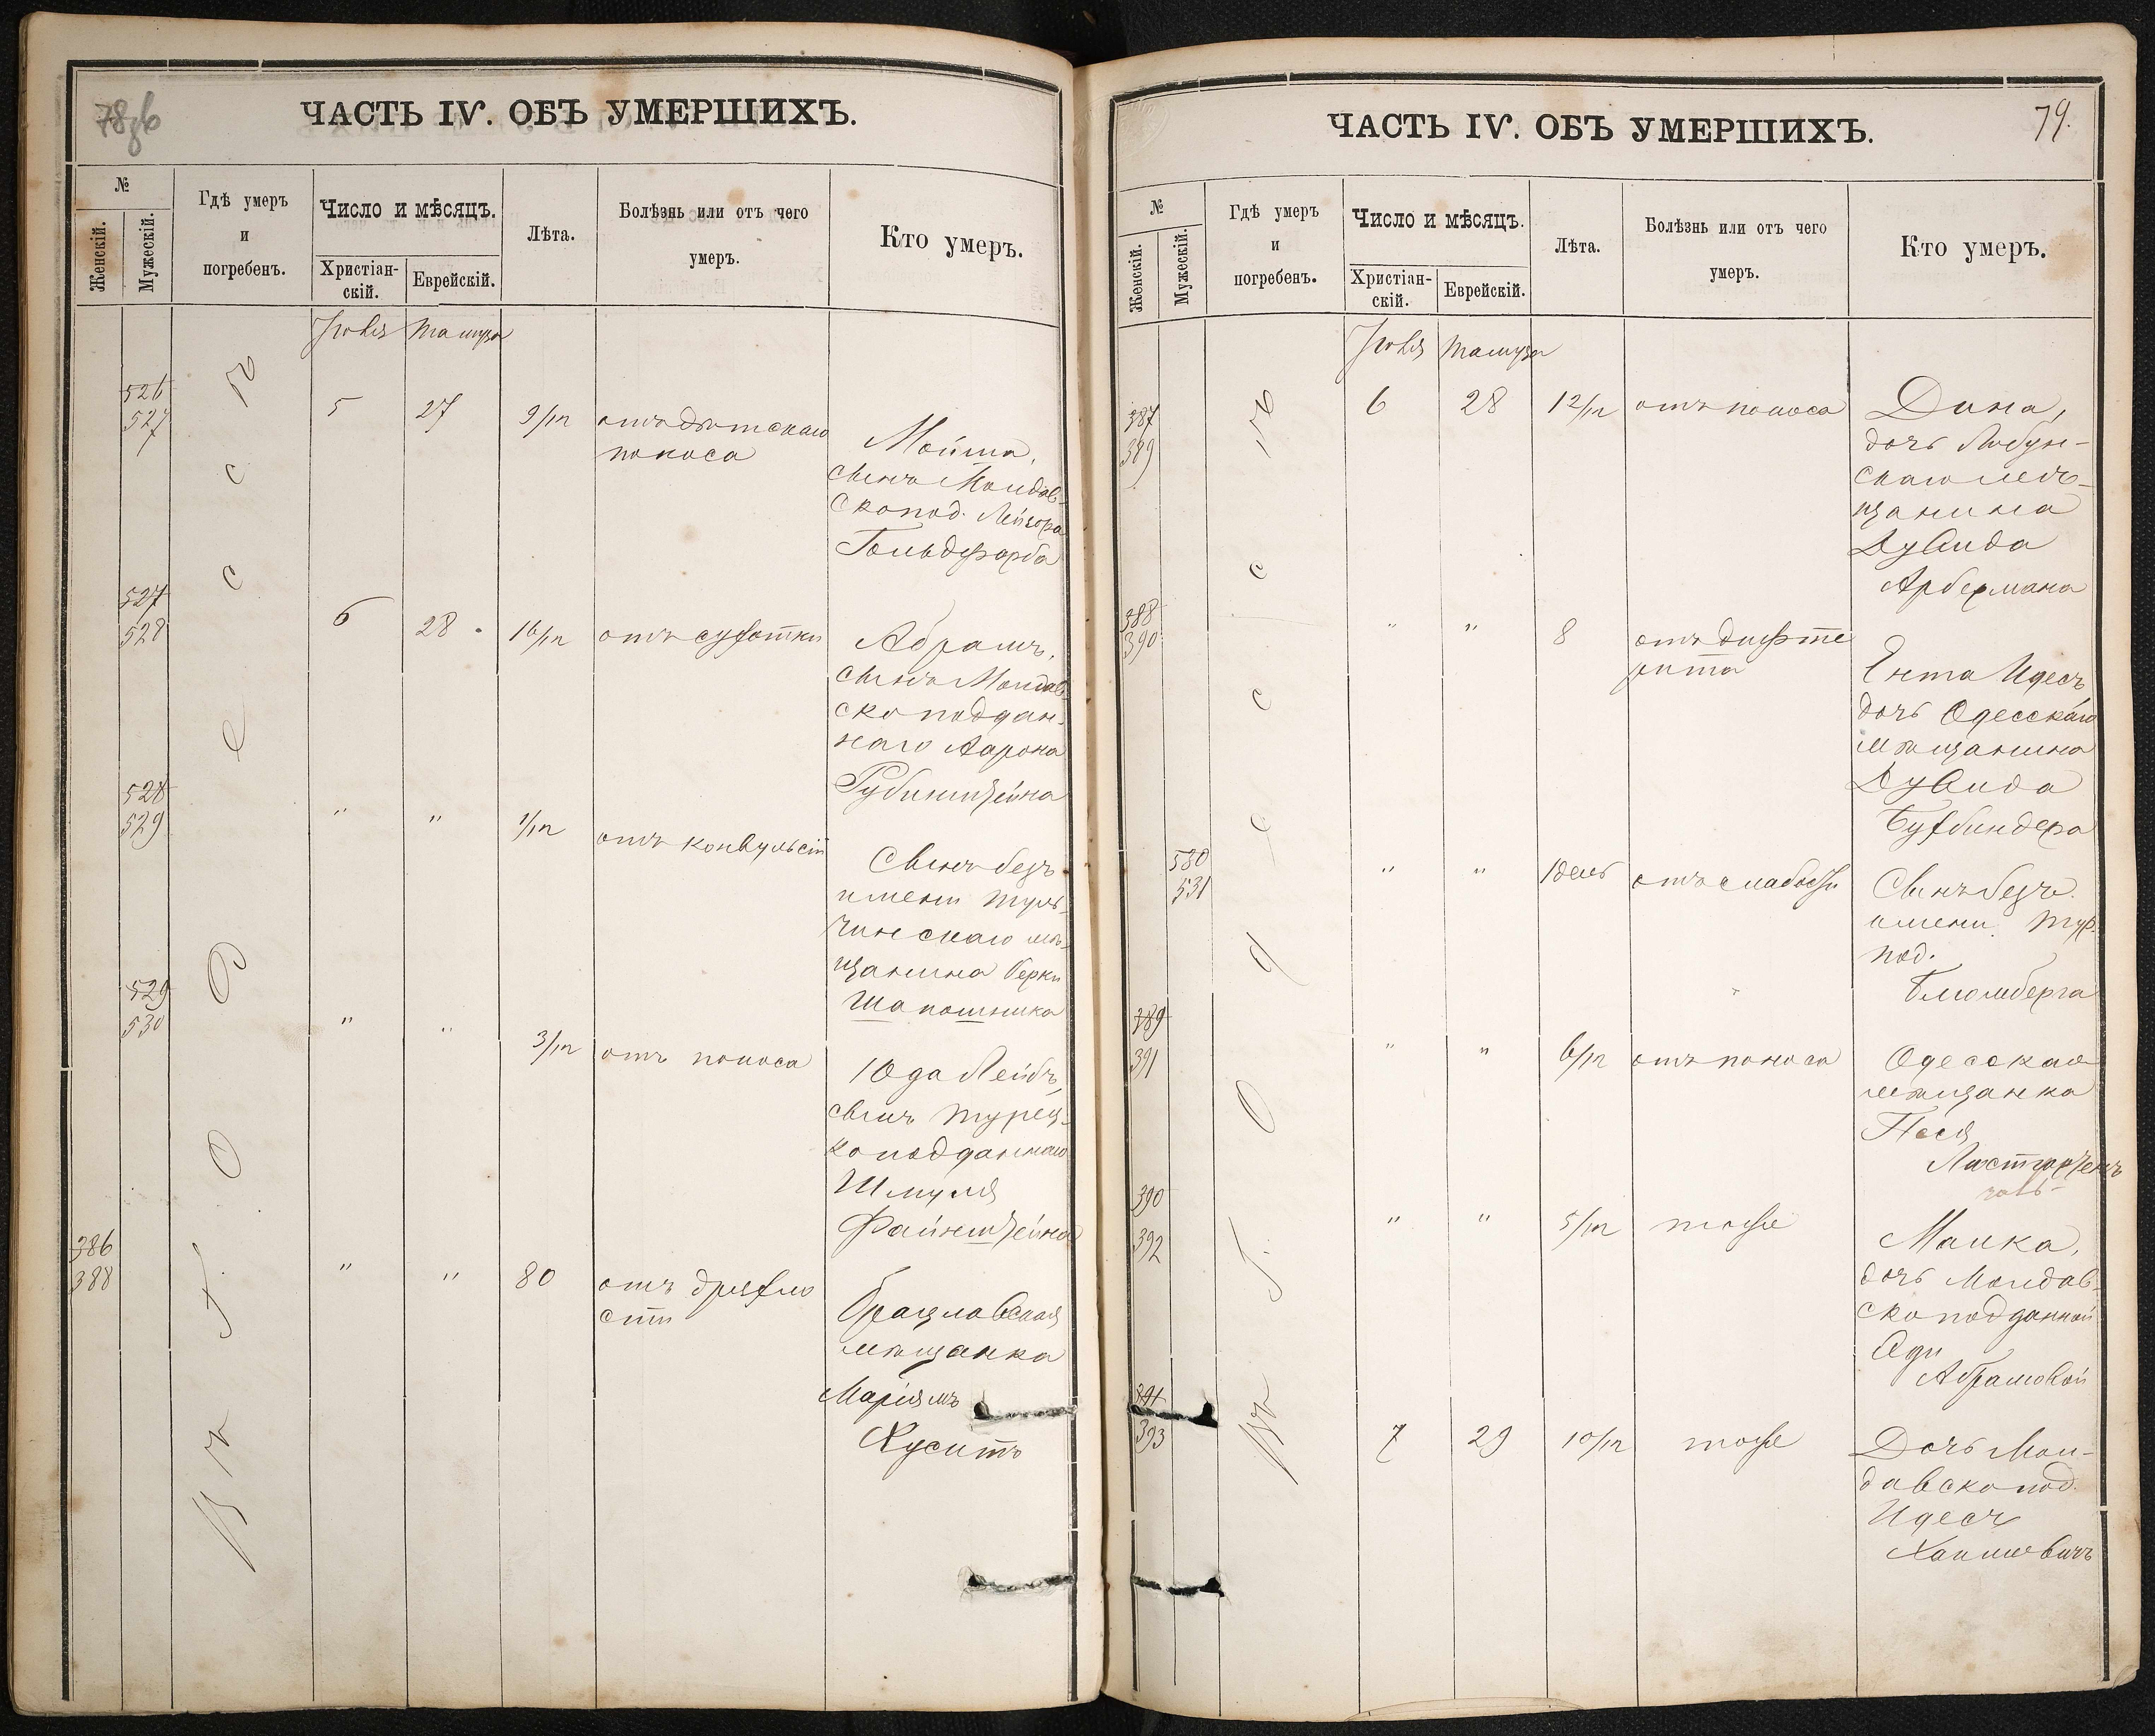 78об
ЧАСТЬ IV. ОБЪ УМЕРШИХЪ.
№
Женскій.
Мужескій.
Гдѣ умеръ
и
погребенъ.
Число и мѣсяцъ.
Христіан-
скій.
Еврейскій.
Лѣта.
Болѣзнь или отъ чего
умеръ.
Кто умеръ.
Въ городѣ Одессѣ
Іюля Тамуза
526
527
5 27 9/12 отъ дѣтскаго
поноса
Мойша,
сынъ Молдав-
скопод. Лейзора
Гольдфарба
527
528
6 28 16/12 отъ сухотки
Абрамъ,
сынъ Молдав-
скоподдан-
наго Аарона
Рубинштейна
528
529
" " 1/12 отъ конвульсій
Сынъ безъ
имени Туль-
чинскаго мѣ-
щанина Берки
Шапошника
529
530
" " 3/12 отъ поноса
Юда Лейбъ,
сынъ Турец-
коподданнаго
Шмуля
Файнштейна
386
388
" " 80 отъ дряхло
сти
Брацлавская
мѣщанка
Маріямъ
Хуситъ
79.
ЧАСТЬ IV. ОБЪ УМЕРШИХЪ.
№
Женскій.
Мужескій.
Гдѣ умеръ
и
погребенъ.
Число и мѣсяцъ.
Христіан-
скій.
Еврейскій.
Лѣта.
Болѣзнь или отъ чего
умеръ.
Кто умеръ.
Въ городѣ Одессѣ
Іюля Тамуза
387
389
6 28 12/12 отъ поноса
Дина,
дочь
мѣ-
щанина
Дувида
Арбермана
388
390
" " 8 отъ дифте
рита
Ента Идесъ
дочь Одесскаго
мѣщанина
Дувида
Бухбиндера
530
531
" " 1 день отъ слабости
Сынъ безъ
имени Тур.
под.
Блюмберга
389
391
" " 6/12 отъ поноса
Одесская
мѣщанка
Песя
390
392
" " 5/12 тоже
Малка,
дочь Молдав-
скоподданной
Ади
Абрамовой
391
393
7 29 10/12 тоже
Дочь Мол-
давскопод.
Идесъ
Хаимовичъ